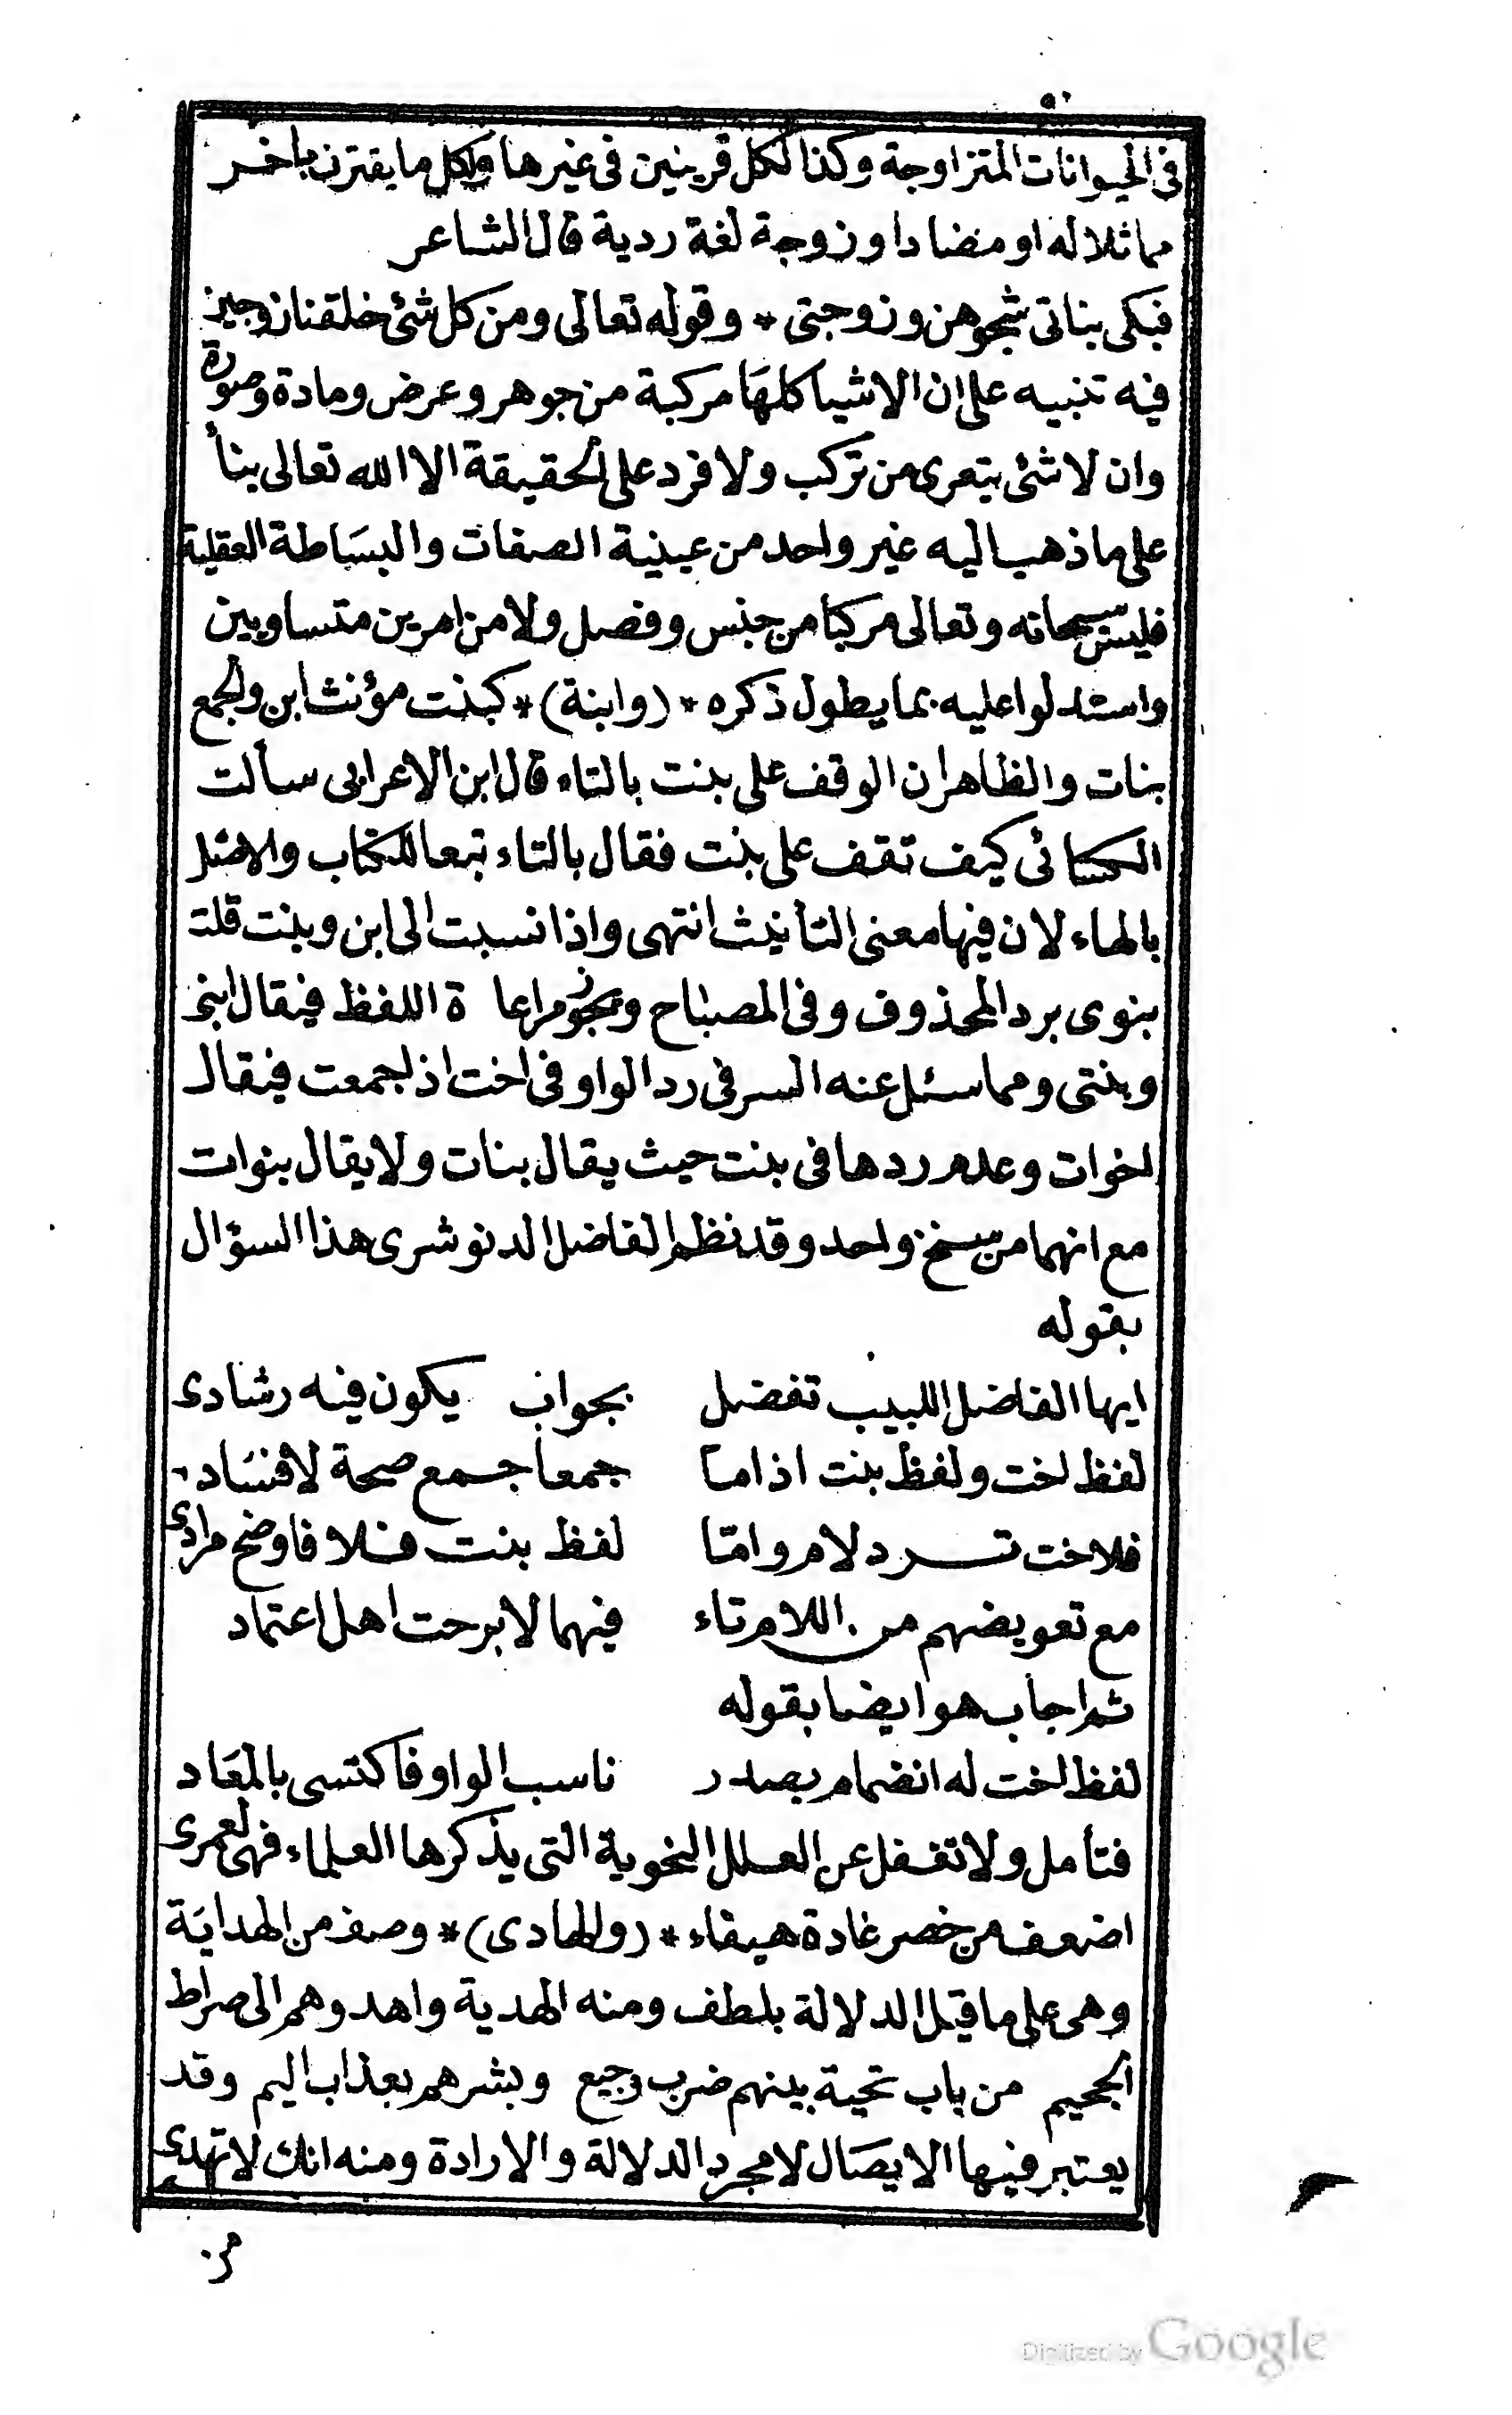 ٥٠
فى الحيوانات المتزاوجة وكذا لكل قرينين فى غيرها ولكل ما يقترن باخر
مماثلا له او مضادا وزوجة لغة ردية قال الشاعر
فبكى بناتى شجوهن وزوجتى * وقوله تعالى ومن كل شئ خلقنا زوجين
فيه تنبيه على ان الاشيا كلهَا مركبة من جوهر وعرض ومادة وصورة
وان لا شئ يتعرى من تركب ولا فرد على الحقيقة الا الله تعالى بنأ
على ما ذهب اليه غير واحد من عينية الصفات والبسَاطة العقلية
فليس سبحانه وتعالى مركبا من جنس وفصل ولا من امرين متساويين
واستدلوا عليه بما يطول ذكره * (وابنة) * كبنت مؤنث ابن والجمع
بنات والظاهر ان الوقف على بنت بالتاء قال ابن الاعرابى سألت
الكسائى كيف تقف على بنت فقال بالتاء تبعا للكتاب والاصل
بالهاء لان فيها معنى التأنيث انتهى واذا نسبت الى ابن وبنت قلت
بنوى برد المحذوف وفى المصباح ويجوز مراعا ة اللفظ فيقال ابنى
وبنتى ومما سئل عنه السر فى رد الواو فى اخت اذا جمعت فيقال
اخوات وعدم ردها فى بنت حيث يقال بنات ولا يقال بنوات
مع انهما من سنخ واحد وقد نظم الفاضل الدنوشرى هذا السؤال
بقوله
ايها الفاضل اللبيب تفضل بجواب يكون فيه رشادى
لفظ اخت ولفظ بنت اذا ما جمعا جمع صحة لا فسَاد
فلاخت ترد لام وامّا لفظ بنت فلا فاوضح مرادى
مع تعويضهم من اللام تاء فيهما لا برحت اهل اعتماد
ثم اجاب هو ايضا بقوله
لفظ اخت له انضمام بصدر ناسب الواو فاكتسى بالمعَاد
فتأمل ولا تغفل عن العلل النحوية التى يذكرها العلماء فهى لعمرى
اضعف من خصر غادة هيفاء * (والهادى) * وصف من الهدايَة
وهى على ما قيل الدلالة بلطف ومنه الهدية واهدوهم الى صراط
الجحيم من باب تحية بينهم ضرب وجيع وبشرهم بعذاب اليم وقد
يعتبر فيها الايصَال لا مجرد الدلالة والارادة ومنه انك لا تهدى
من
Digitized by Google